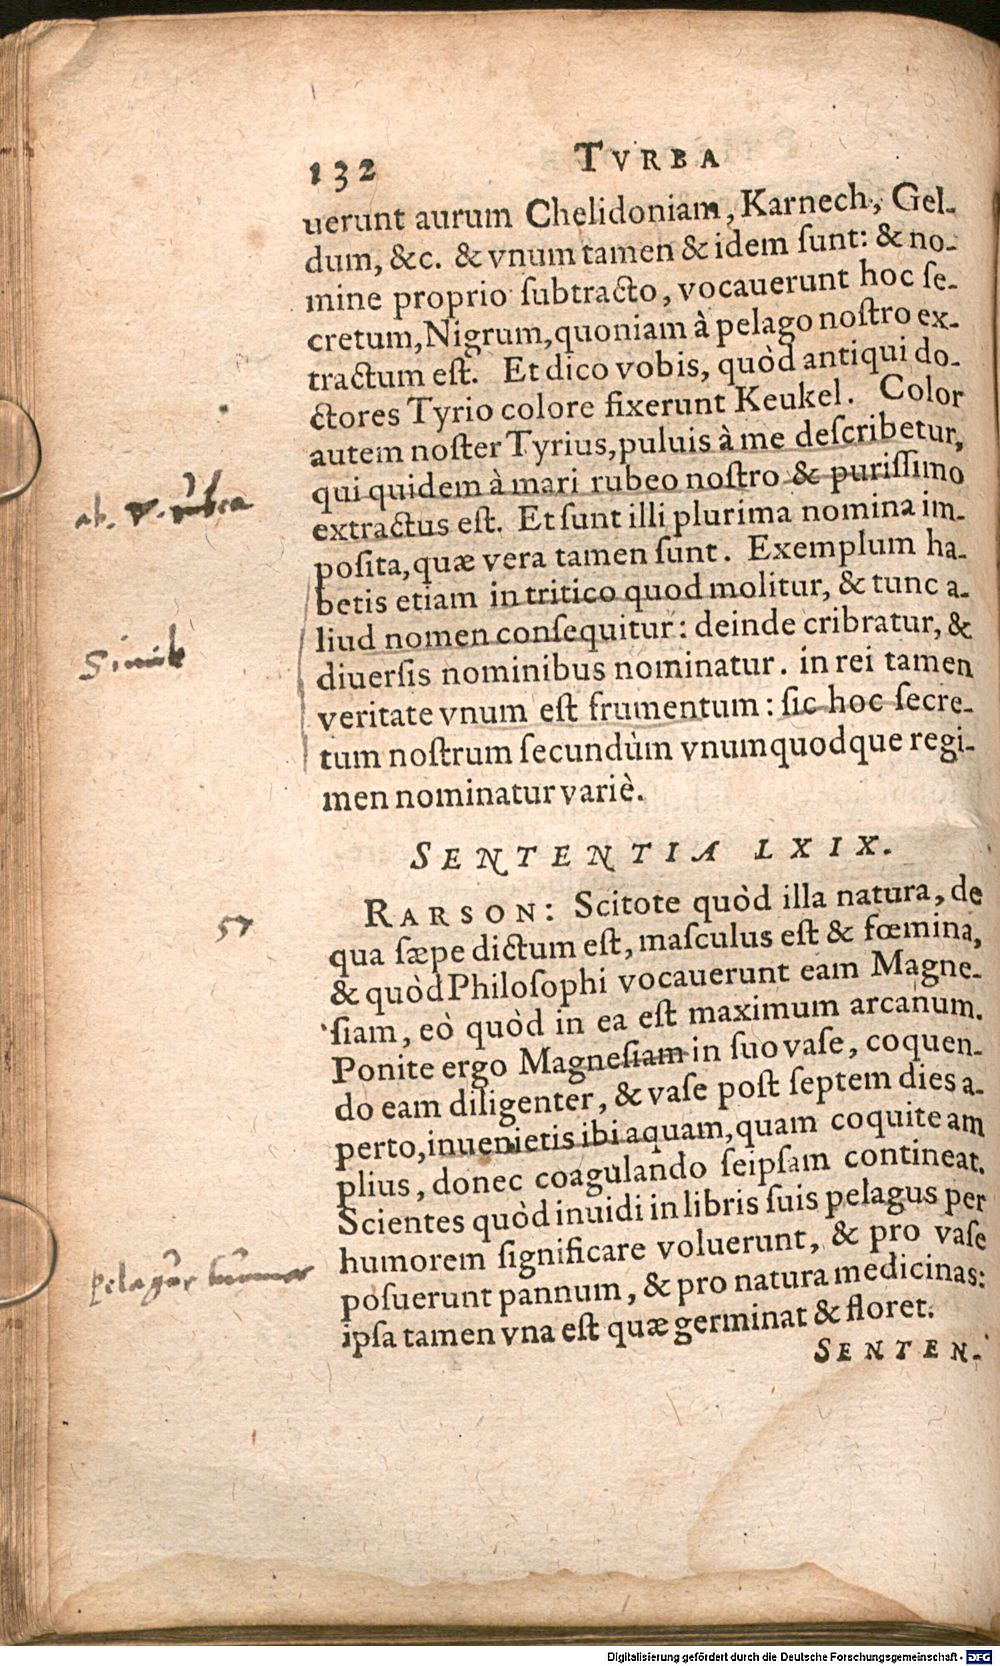 132 TVRBA
uerunt aurum Chelidoniam, Karnech, Gel-
dum, &c. & vnum tamen & idem sunt: & no-
mine proprio subtracto, vocauerunt hoc se-
cretum, Nigrum, quoniam à pelago nostro ex-
tractum est. Et dico vobis, quòd antiqui do-
ctores Tyrio colore fixerunt Keukel. Color
autem noster Tyrius, puluis à me describetur,
qui quidem à mari rubeo nostro & purissimo
extractus est. Et sunt illi plurima nomina im-
posita, quæ vera tamen sunt. Exemplum ha-
betis etiam in tritico quod molitur, & tunc a-
liud nomen consequitur: deinde cribratur, &
diuersis nominibus nominatur. in rei tamen
veritate vnum est frumentum: sic hoc secre-
tum nostrum secundùm vnumquodque regi-
men nominatur variè.
ab.
Simile
SENTENTIA LXIX.
57
RARSON: Scitote quòd illa natura, de
qua sæpe dictum est, masculus est & fœmina,
& quòd Philosophi vocauerunt eam Magne-
siam, eò quòd in ea est maximum arcanum.
Ponite ergo Magnesiam in suo vase, coquen-
do eam diligenter, & vase post septem dies a-
perto, inuenietis ibi aquam, quam coquite am
plius, donec coagulando seipsam contineat.
Scientes quòd inuidi in libris suis pelagus per
humorem significare voluerunt, & pro vase
posuerunt pannum, & pro natura medicinas:
ipsa tamen vna est quæ germinat & floret.
SENTEN-
Digitalisierung gefördert durch die Deutsche Forschungsgemeinschaft - DFG